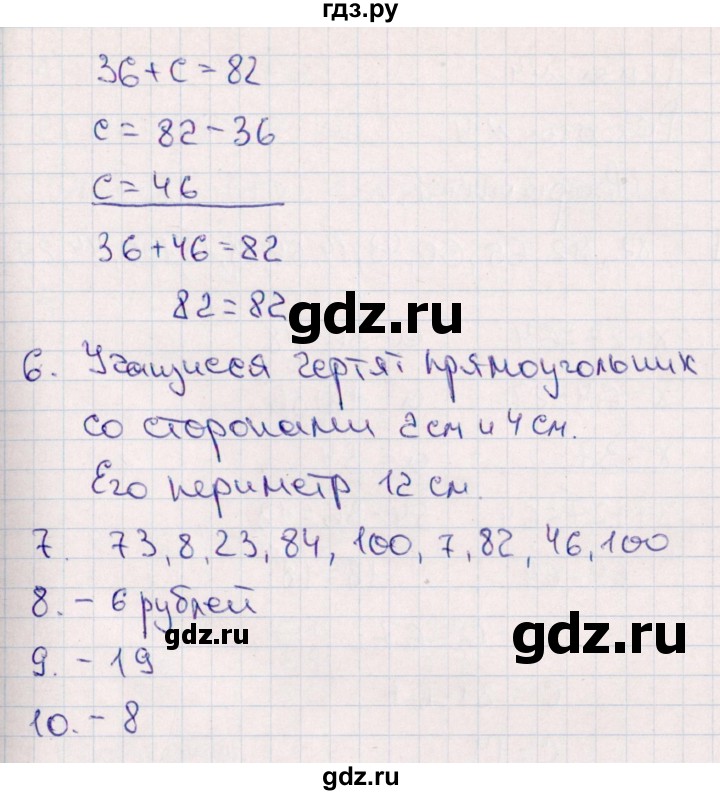 гдз.ру
36 + с = 82
с = 82 - 36
с = 46
36 + 46 = 82
82 = 82
gdz.ru
6. Учащиеся чертят прямоугольник
со сторонами 2 см и 4 см.
Его периметр 12 см.
7. 73, 8, 23, 84, 100, 7, 82, 46, 100
8. - 6 рублей
gdz.ru
gdz.ru
9. - 19
10. - 8
gdz.ru